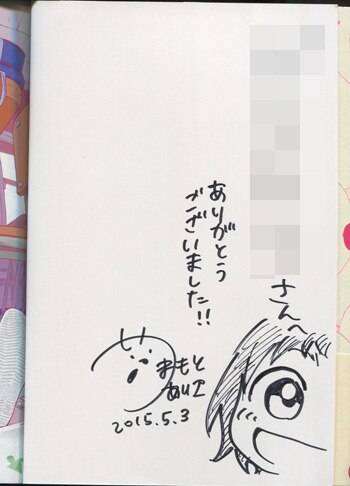 さんへ
ありがとう
ございました!!
まもと
2015.5.3